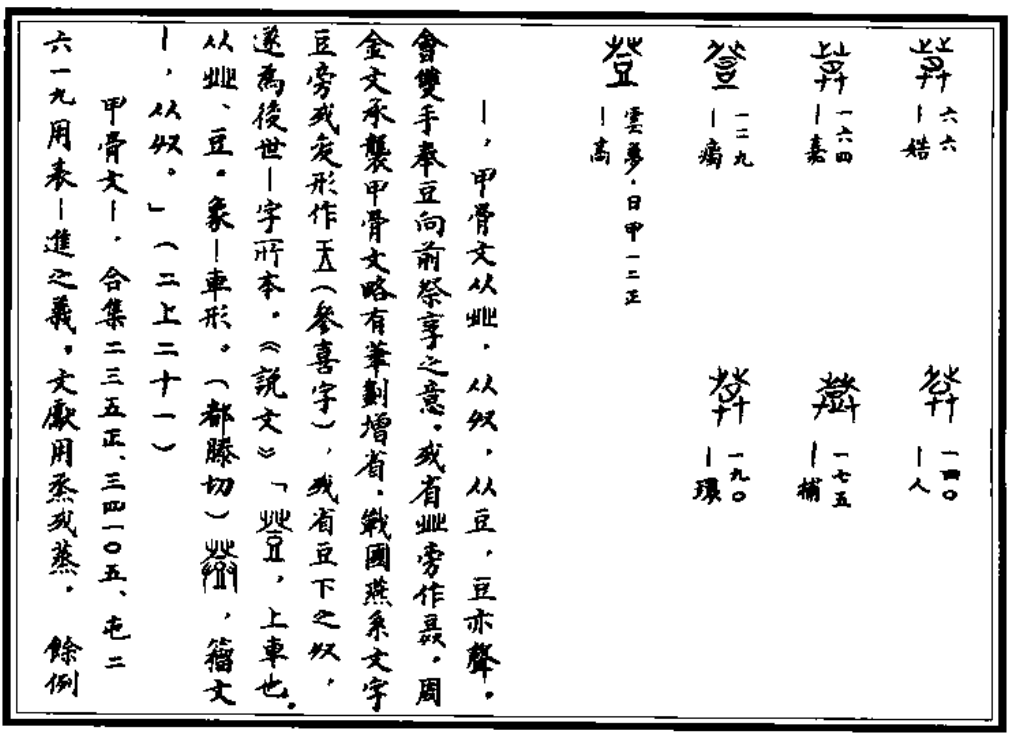 六六
｜㛭
一四〇
｜人
一六四
｜嘉
一七五
｜補
一二九
｜㾓
一九〇
｜環
登
雲夢．日甲一二正
｜高
｜，甲骨文从癶．从収．从豆，豆亦聲。
會雙手奉豆向前祭享之意。或省癶旁作𤼷。周
金文承襲甲骨文略有筆劃增省．戰國燕系文字
豆旁或変形作（參喜字），或省豆下之収，
遂為後世｜字所本。《說文》「，上車也。
从癶、豆。象｜車形。（都滕切），籀文
｜，从収。」（二上二十一）
甲骨文｜，合集二三五正、三四一〇五、屯二
六一九用表｜進之義。文獻用烝或蒸。　餘例